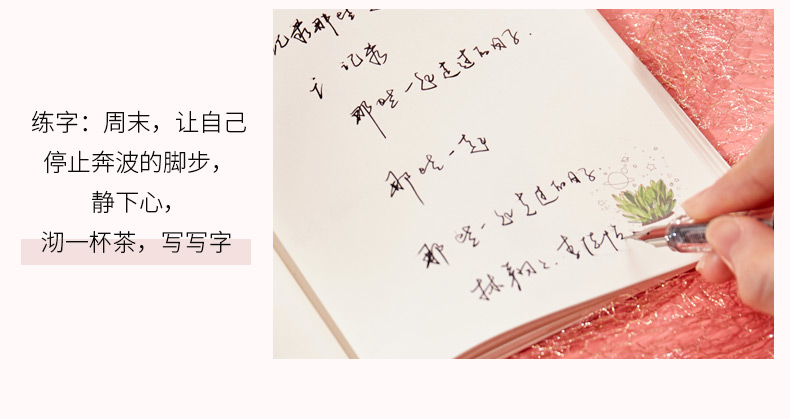 练字：周末，让自己
停止奔波的脚步，
静下心，
沏一杯茶，写写字
记录那些
记录
那些一起走过的日子.
那些一起
那些一起走过的日子.